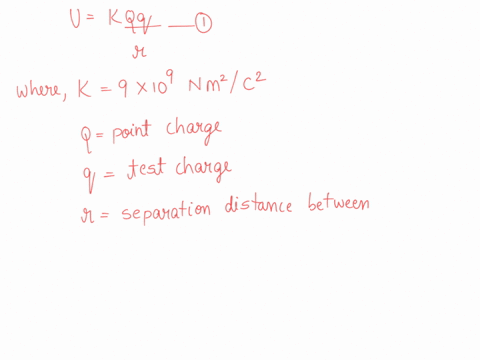 U = KQq —— ①
r
where, K = 9 × 10⁹ Nm²/C²
Q = point charge
q = test charge
r = separation distance between